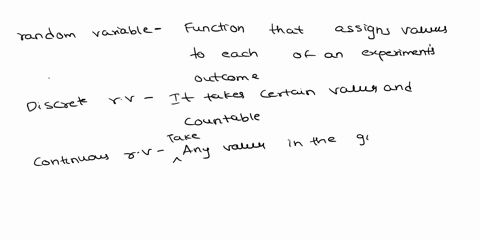 random variable- Function that assigns values
to each of an experiments
outcome
Discrete r.v - It takes certain values and
countable
Continuous r.v - Take Any values in the